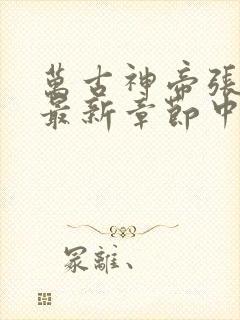 萬古神帝張
最新章節中
冢離、